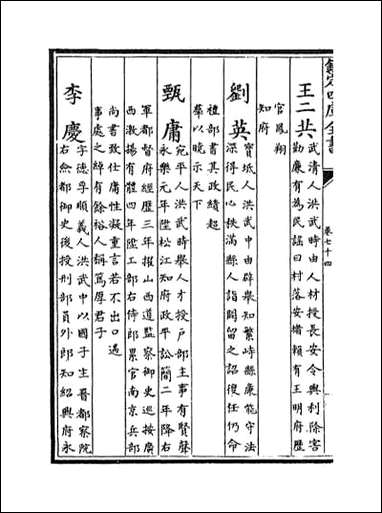 欽定四庫全書
卷七十四
王二共
武清人洪武時由人材授長安令興利除害
勤廉有為民謡曰村落安憐賴有王明府歴
官鳳翔
知府
劉英
寳坻人洪武中由辟舉知繁峙縣廉能守法
深得民心秩滿縣人詣闕留之詔復任仍命
禮部書其政績超
羣以曉示天下
甄庸
宛平人洪武時舉人才授戸部主事有賢聲
永樂元年陞松江知府政平訟簡二年降右
軍都督府經歴三年擢山西道監察御史巡按廣
西激揚有體四年陞工部右侍郎累官南京兵部
尚書致仕庸性凝重言若不出口遇
事處之綽有餘裕人稱篤厚君子
李慶
字徳孚順義人洪武中以國子生署都察院
右僉都御史後授刑部員外郎知紹興府永